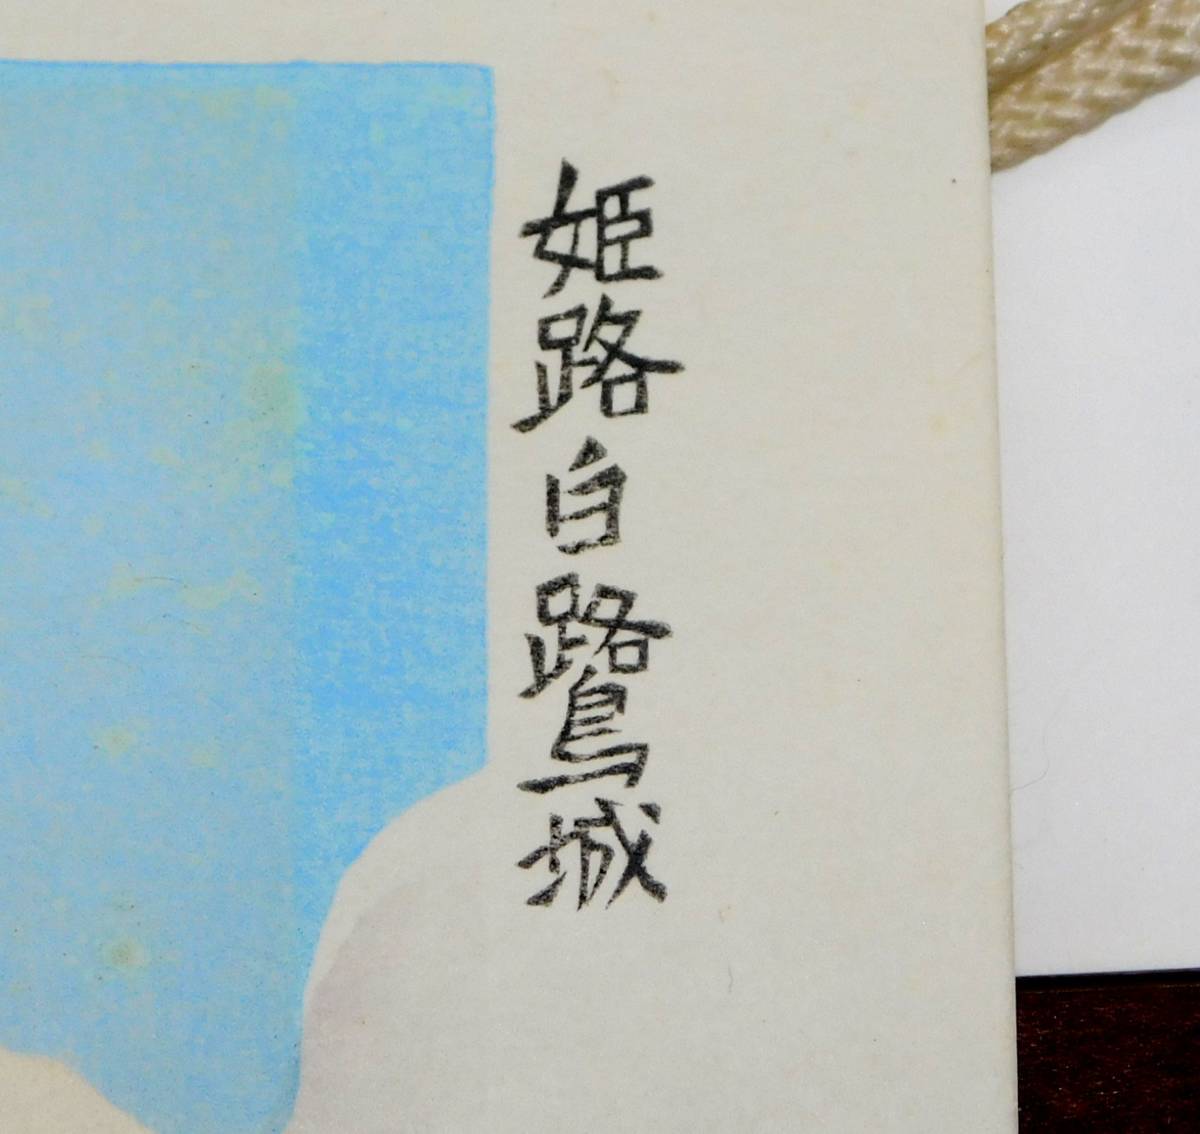 姫路白鷺城